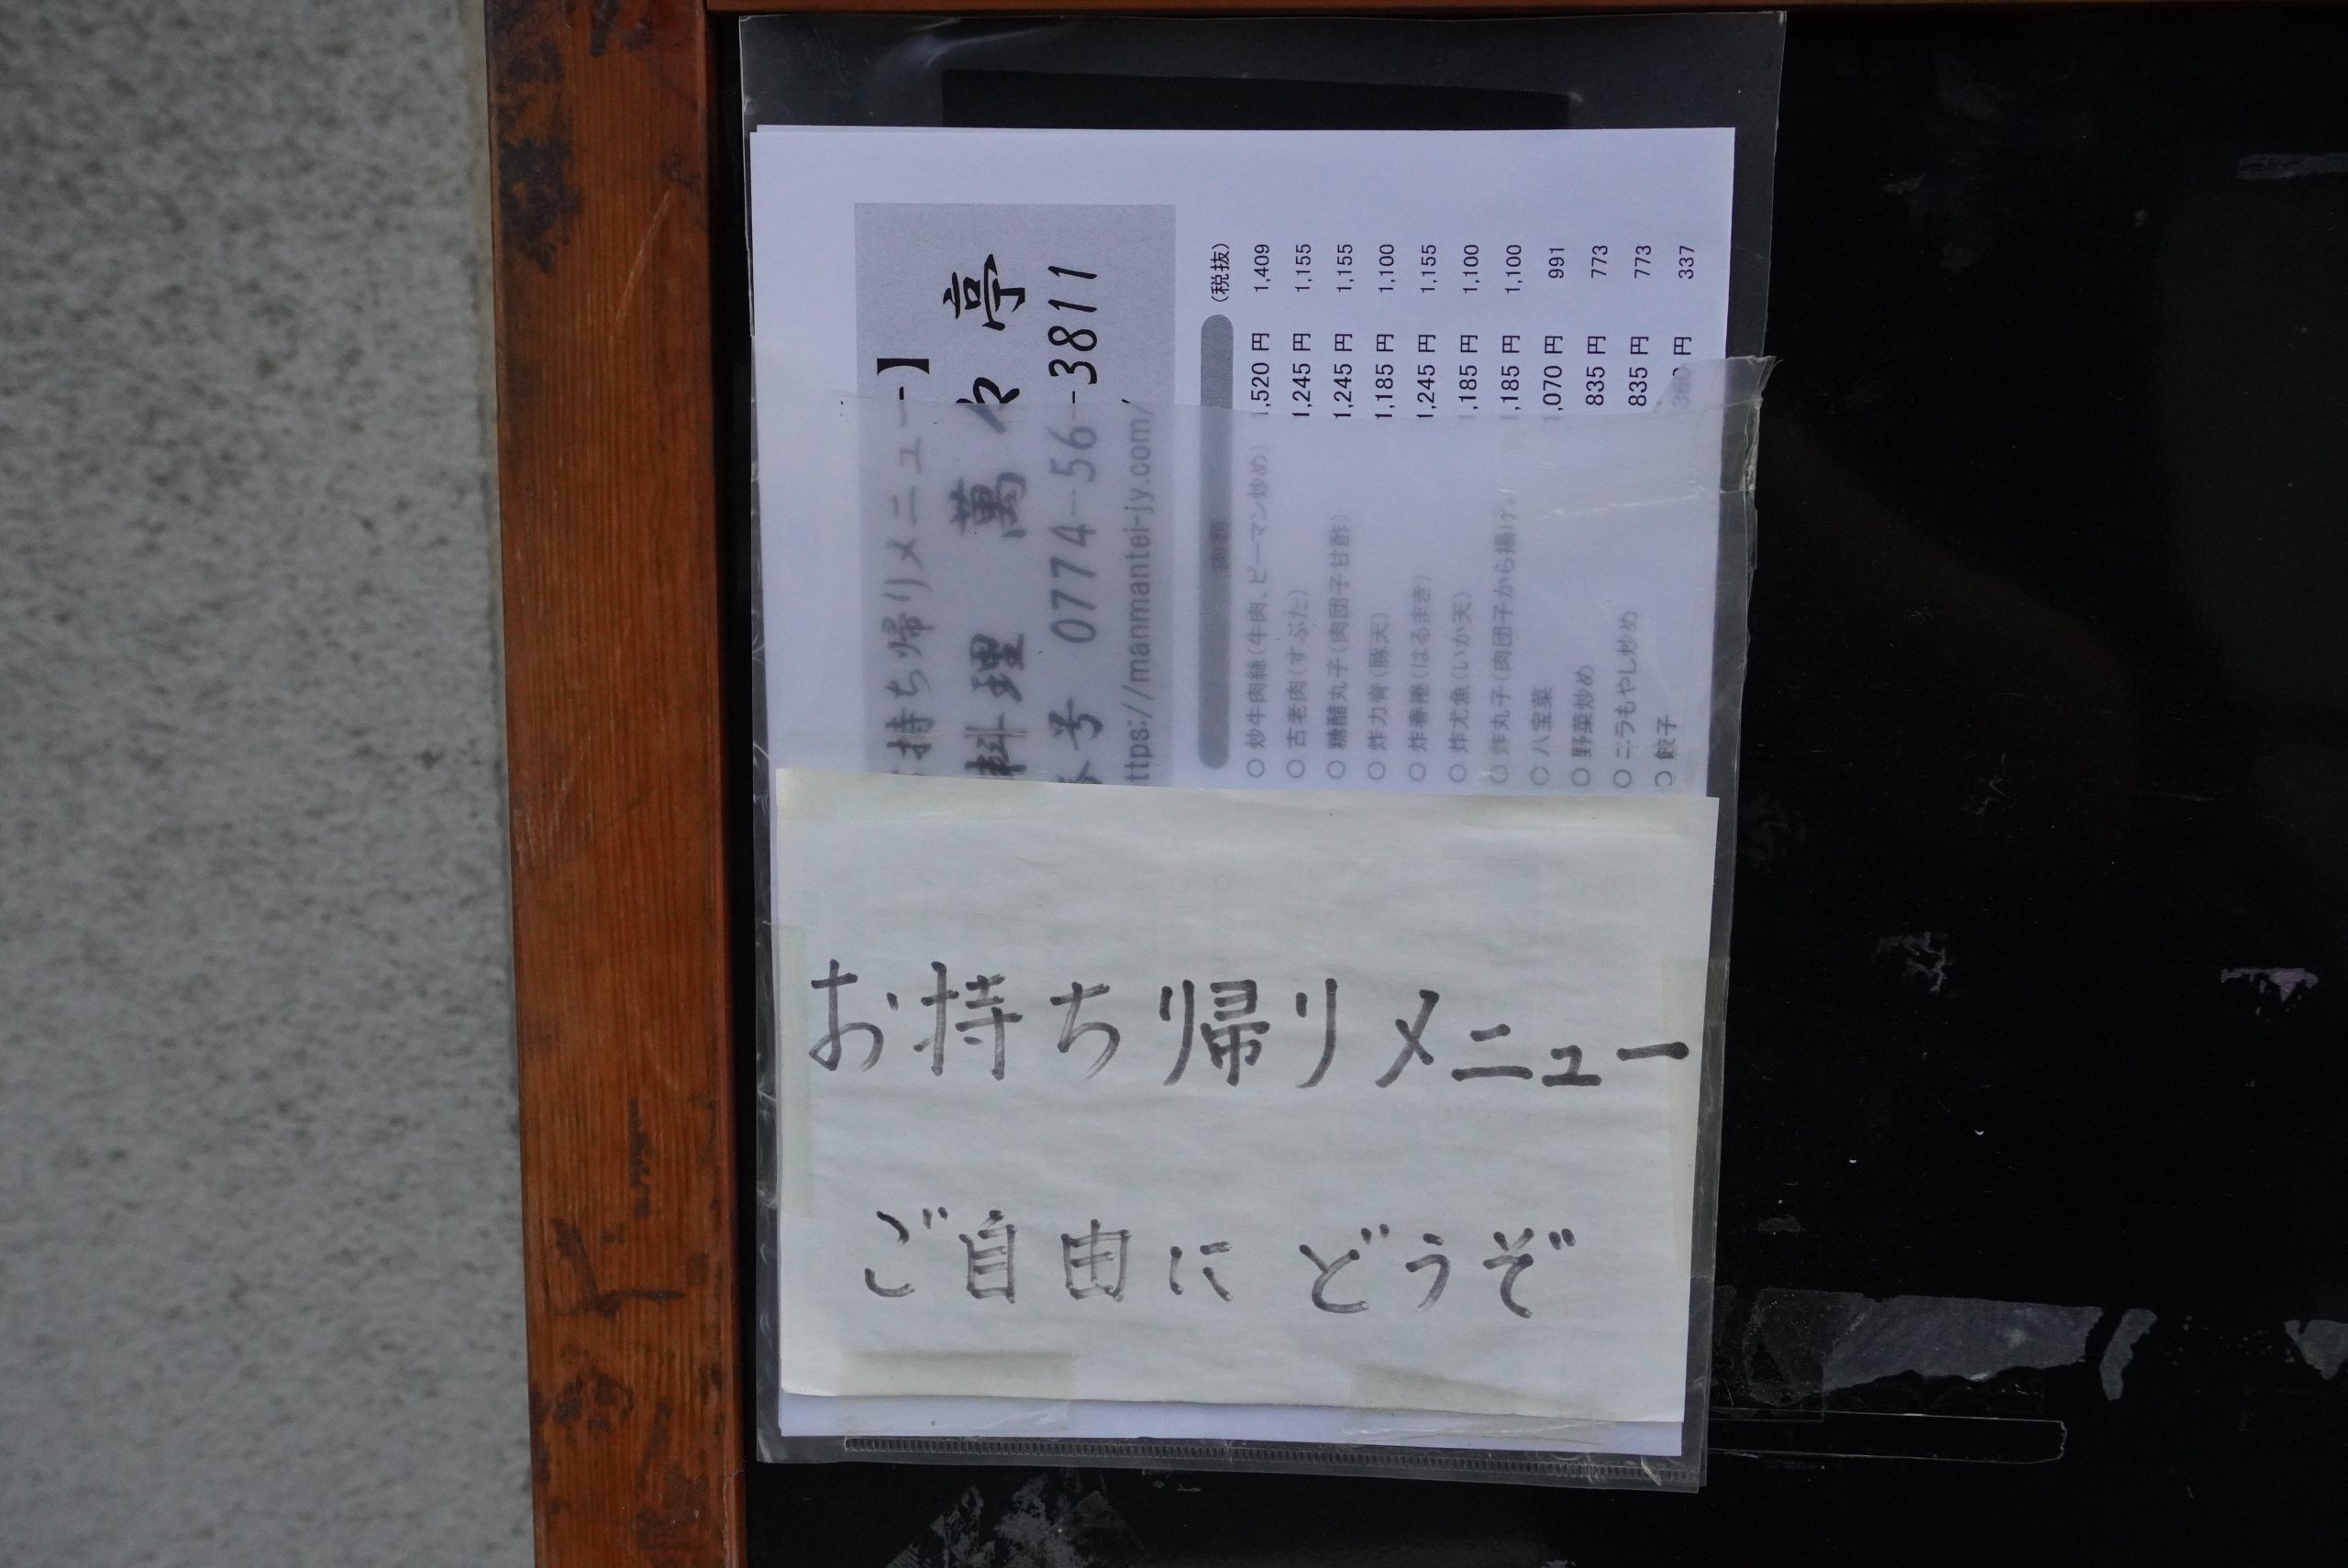 持ち帰りメニュー】
料理 萬々亭
号 0774-56-3811
ttps://manmantei-jy.com/
(税抜)
○ 炒牛肉絲(牛肉、ピーマン炒め) 1,520 円 1,409
○ 古老肉(すぶた) 1,245 円 1,155
○ 糖醋丸子(肉団子甘酢) 1,245 円 1,155
○ 炸力脊(豚天) 1,185 円 1,100
○ 炸春捲(はるまき) 1,245 円 1,155
○ 炸尤魚(いか天) 1,185 円 1,100
○ 炸丸子(肉団子から揚げ) 1,185 円 1,100
○ 八宝菜 1,070 円 991
○ 野菜炒め 835 円 773
○ ニラもやし炒め 835 円 773
○ 餃子 360 円 337
お持ち帰りメニュー
ご自由にどうぞ